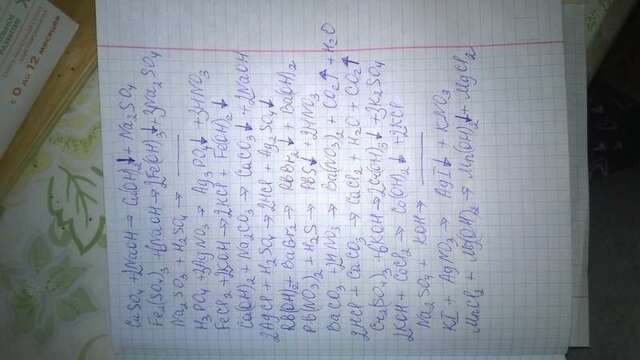 с 0 до 12 месяцев
CuSO4 + 2NaOH → Cu(OH)2↓ + Na2SO4
Fe2(SO4)3 + 6NaOH → 2Fe(OH)3↓ + 3Na2SO4
Na2SO3 + H2SO4 →
H3PO4 + 3AgNO3 → Ag3PO4↓ + 3HNO3
FeCl2 + 2KOH → 2KCl + Fe(OH)2↓
Ca(OH)2 + Na2CO3 → CaCO3↓ + 2NaOH
2AgCl + H2SO4 → 2HCl + Ag2SO4↓
Pb(OH)2 + BaBr2 → PbBr2↓ + Ba(OH)2
Pb(NO3)2 + H2S → PbS↓ + 2HNO3
BaCO3 + 2HNO3 → Ba(NO3)2 + CO2↑ + H2O
2HCl + CaCO3 → CaCl2 + H2O + CO2↑
(SO4)3 + 6KOH → (OH)3↓ + 3K2SO4
2KOH + CoCl2 → Co(OH)2↓ + 2KCl
Na2SO4 + KOH →
KI + AgNO3 → AgI↓ + KNO3
MnCl2 + Mg(OH)2 → Mn(OH)2↓ + MgCl2